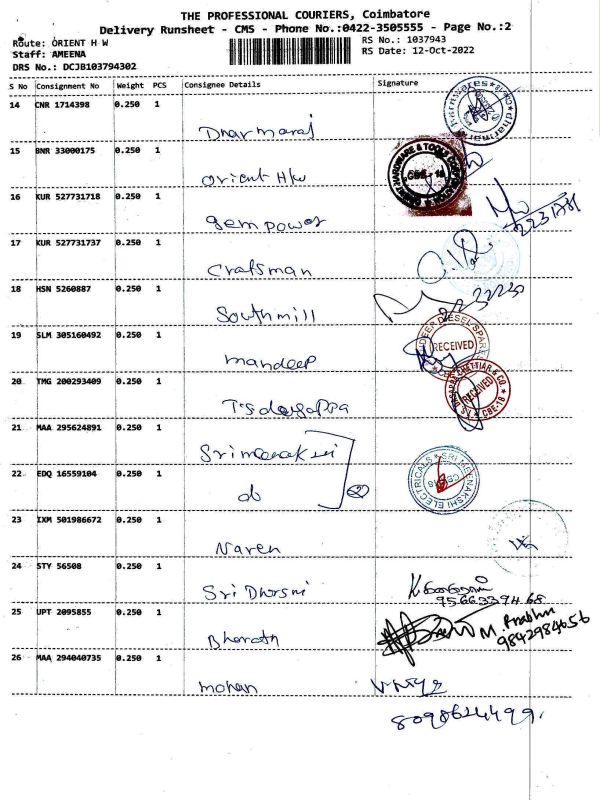 THE PROFESSIONAL COURIERS, Coimbatore
Delivery Runsheet - CMS - Phone No.:0422-3505555 - Page No.:2
Route: ORIENT H W
RS No.: 1037943
Staff: AMEENA
RS Date: 12-Oct-2022
DRS No.: DCJB103794302
S No Consignment No Weight PCS Consignee Details Signature
14 CNR 1714398 0.250 1
Dharmaraj
15 BNR 33000175 0.250 1
Orient H/w
HARDWARE & TOOLS CORPORATION
CBE - 18
16 KUR 527731718 0.250 1
Gem power
17 KUR 527731737 0.250 1
Craftsman
18 HSN 5260887 0.250 1
Southmill
19 SLM 305160492 0.250 1
mandeep
DEEP DIESEL SPARE
RECEIVED
20 TMG 200293409 0.250 1
CHETTIAR & CO
RECEIVED
CBE-18
21 MAA 295624891 0.250 1
22 EDQ 16559104 0.250 1
do
SRI MEENAKSHI ELECTRICALS
23 IXM 501986672 0.250 1
Naren
24 STY 56508 0.250 1
Sri Dharsni
9566339468
25 UPT 2095855 0.250 1
Bharath
M. Prabhu
9842984656
26 MAA 294040735 0.250 1
mohan
8098624499.